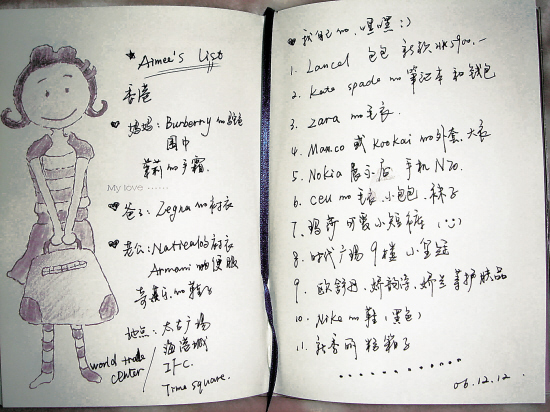 ★ Aimee's List
香港
♥ 妈妈: Burberry の 驼色
围巾
茉莉の手霜
My love ......
♥ 爸爸: Zegna の 衬衣
♥ 老公: Natural的衬衣
Armani 的便服
の鞋子
地点: 太古广场
world trade center / 海港城
IFC.
Time square.
♥ 我自己の, 嘿嘿 :)
1. Lancel 包包 新款 HK5900.-
2. Kate spade の 笔记本 和 钱包
3. Zara の 毛衣.
4. Manco 或 Kookai の外套、大衣
5. Nokia 展示店 手机 N70.
6. ceu の 毛衣、小包包、袜子
7. 玛莎 可爱小短裤 (:)
8. 时代广场 9楼
9. 欧舒丹、娇韵诗、娇兰 等护肤品
10. Nike の 鞋 (黑色)
11. 箱子
............
06.12.12.